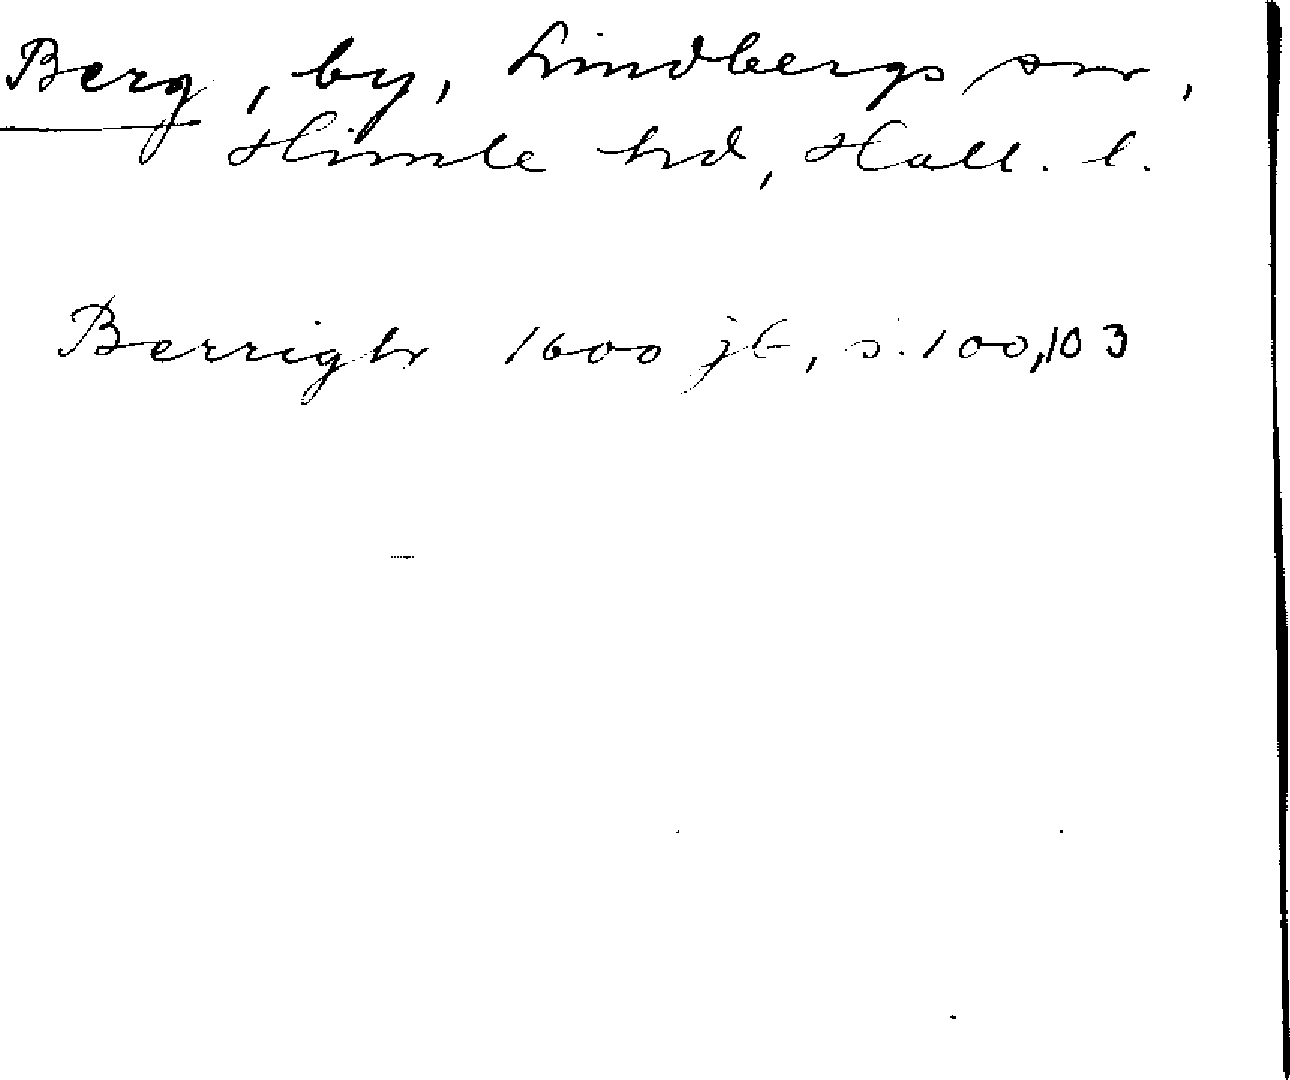 Berg, by, Lindbergs snr,
Himle hd, Hall. l.
Berrigh 1600 jb, s. 100, 103